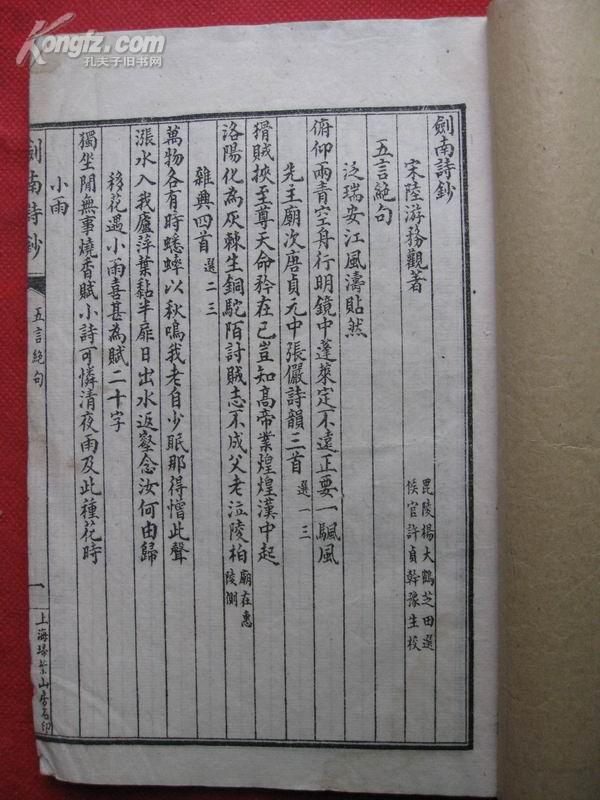 Kongfz.com
孔夫子旧书网
劍南詩鈔
宋陸游務觀著
毘陵楊大鶴芝田選
候官許貞幹豫生校
五言絕句
泛瑞安江風濤貼然
俯仰兩青空舟行明鏡中蓬萊定不遠正要一颿風
先主廟次唐貞元中張儼詩韻三首選一三
猾賊挾至尊天命矜在己豈知高帝業煌煌漢中起
洛陽化為灰棘生銅駝陌討賊志不成父老泣陵柏廟在惠陵側
雜興四首選二三
萬物各有時蟋蟀以秋鳴我老自少眠那得憎此聲
漲水入我廬萍葉黏半扉日出水返壑念汝何由歸
移花遇小雨喜甚為賦二十字
獨坐閒無事燒香賦小詩可憐清夜雨及此種花時
小雨
劍南詩鈔
五言絕句
一
上海埽葉山房石印